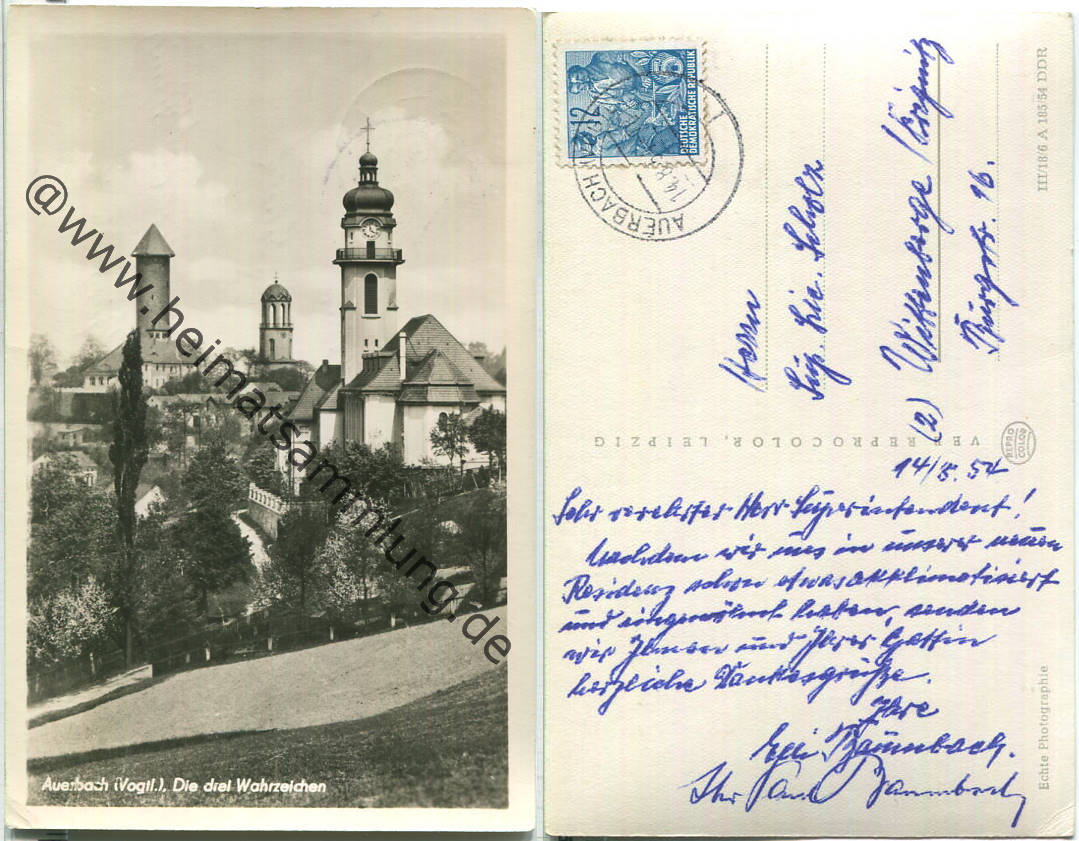 @www.heimatsammlung.de
Auerbach (Vogtl.). Die drei Wahrzeichen
12
DEUTSCHE
DEMOKRATISCHE REPUBLIK
AUERBACH (VOGTL)
Herrn
Sup. Lic. Scholz
(2) Wittenberge /Prignitz
Burgstr. 16.
III/18/6 A 185/54 DDR
VEB REPROCOLOR, LEIPZIG
REPRO
COLOR
Echte Photographie
14/8. 54
Sehr verehrter Herr Superintendent!
Nachdem wir uns in unserer neuen
Residenz schon etwas akklimatisiert
und eingewöhnt haben, senden
wir Ihnen und Ihrer Gattin
herzliche Dankesgrüße.
Ihre
Baumbach.
Ihr Baumbach